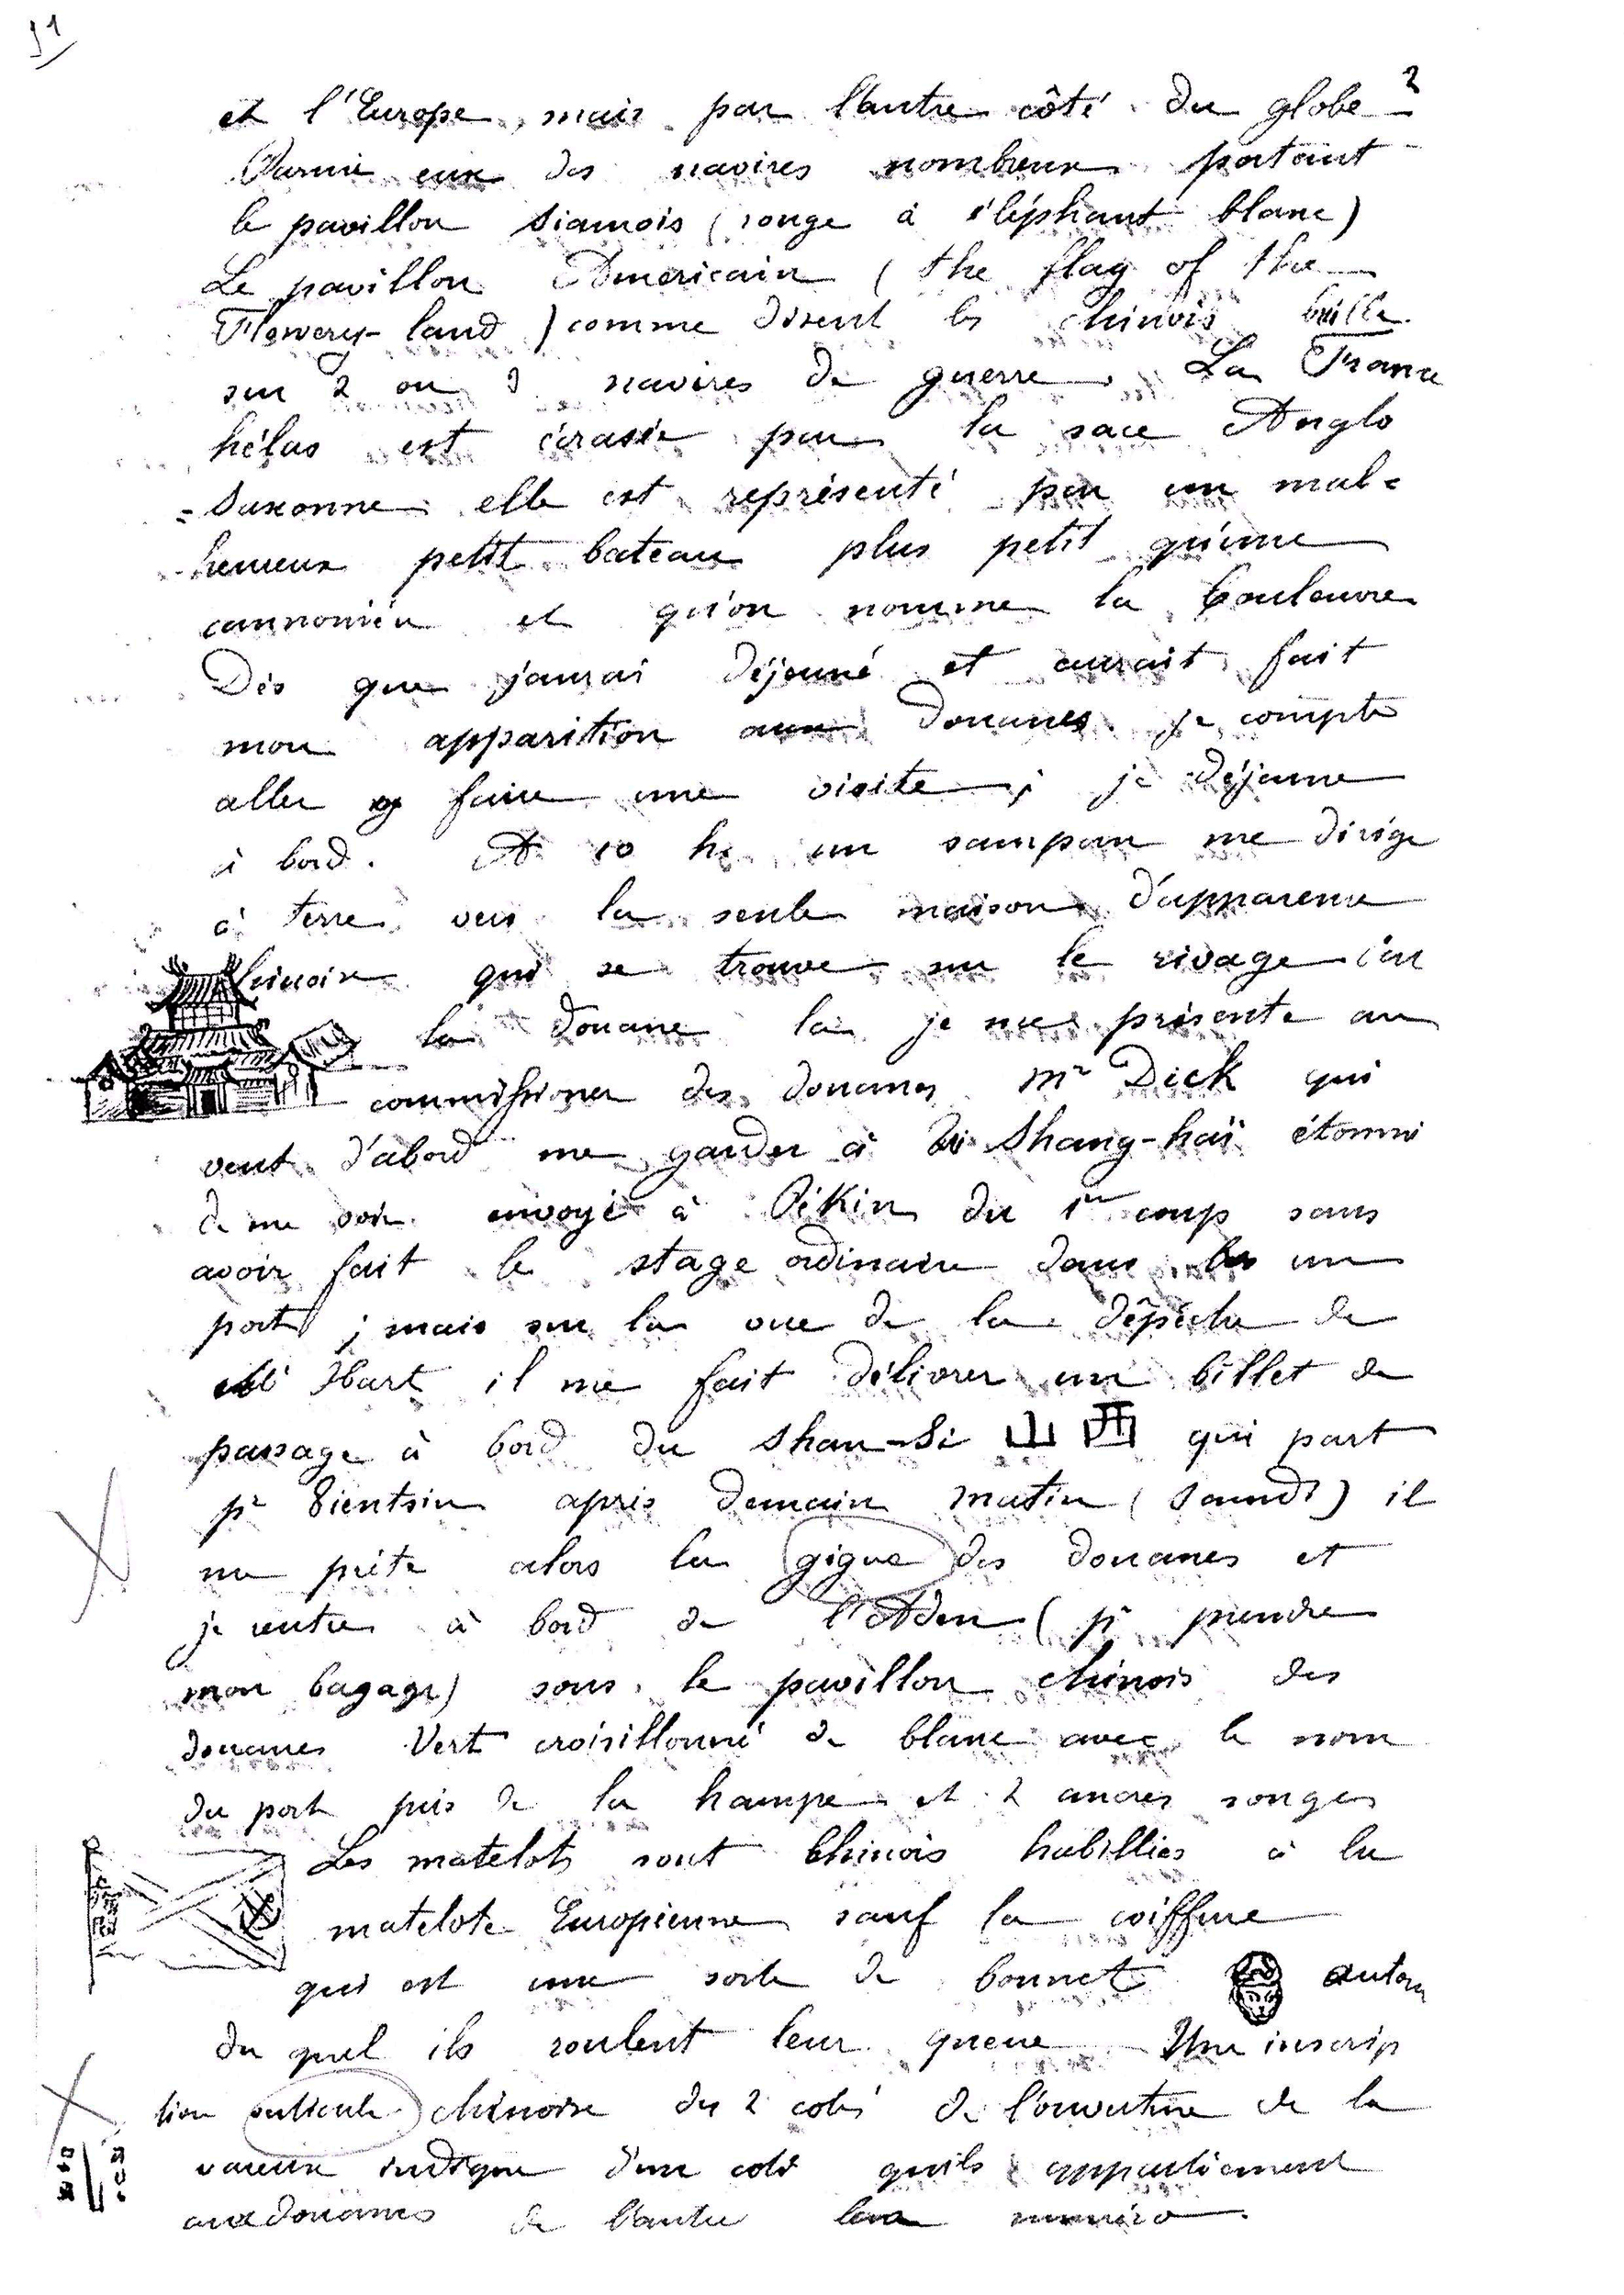 51
2
et l'Europe, mais par l'autre côté du globe
Parmi eux des navires nombreux portant
le pavillon Siamois (rouge à éléphant blanc)
Le pavillon Américain (the flag of the
Flowery-land) comme disent les chinois brille
sur 2 ou 3 navires de guerre. La France
hélas est écrasée par la race Anglo
=Saxonne elle est représenté par un mal=
heureux petit bateau plus petit qu'une
cannonière et qu'on nomme la Couleuvre
Dès que j'aurai déjeuné et aurait fait
mon apparition aux Douanes je compte
aller y faire une visite ; je déjeune
à bord. A 10 h. un sampan me dirige
à terre vers la seule maison d'apparence
chinoise qui se trouve sur le rivage c'est
la douane la je me présente au
commissioner des douanes Mr Dick qui
veut d'abord me garder à Shang-haï étonné
de me voir envoyé à Pékin du 1er coup sans
avoir fait le stage ordinaire dans un
port ; mais sur la vue de la dépêche de
Hart il me fait délivrer un billet de
passage à bord du Shan-Si 山西 qui part
pr Tientsin après demain matin (samedi) il
me prête alors la gigue des douanes et
je rentre à bord de l'Aden (pr prendre
mon bagage) sous le pavillon chinois des
douanes Vert croisillonné de blanc avec le nom
du port près de la hampe et 2 ancres rouges
Les matelots sont Chinois habillés à la
matelote Européenne sauf la coiffure
qui est une sorte de bonnet autour
du quel ils roulent leur queue Une inscrip
tion chinoise des 2 cotés de l'ouverture de la
vareuse indique d'un coté qu'ils appartiennent
aux douanes de l'autre leur numéro.